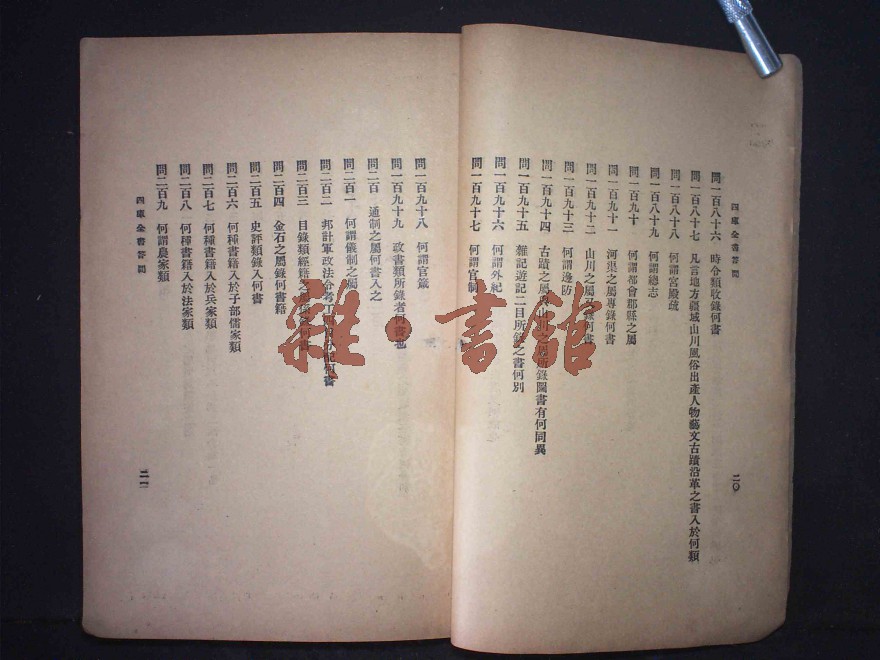 四庫全書答問
問一百八十六 時令類收錄何書
問一百八十七 凡言地方疆域山川風俗出產人物藝文古蹟沿革之書入於何類
問一百八十八 何謂宮殿疏
問一百八十九 何謂總志
問一百九十 何謂都會郡縣之屬
問一百九十一 河渠之屬專錄何書
問一百九十二 山川之屬專錄何書
問一百九十三 何謂邊防
問一百九十四 古蹟之屬與山川之屬所錄圖書有何同異
問一百九十五 雜記遊記二目所錄之書何別
問一百九十六 何謂外紀
問一百九十七 何謂官制
二〇
問一百九十八 何謂官箴
問一百九十九 政書類所錄者何書也
問二百 通制之屬何書入之
問二百一 何謂儀制之屬
問二百二 邦計軍政法令考工
問二百三 目錄類經籍之屬 何書
問二百四 金石之屬錄何書籍
問二百五 史評類錄入何書
問二百六 何種書籍入於子部儒家類
問二百七 何種書籍入於兵家類
問二百八 何種書籍入於法家類
問二百九 何謂農家類
四庫全書答問
二一
雜·書館